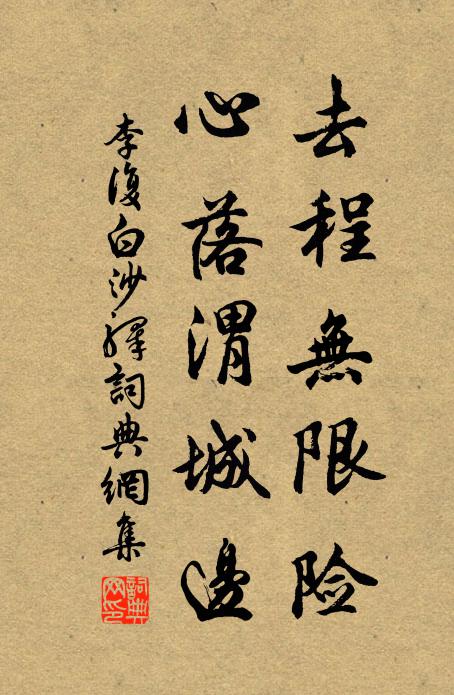 去程無限险
心落渭城邊
李復白沙驛詞典網集
詞典网印